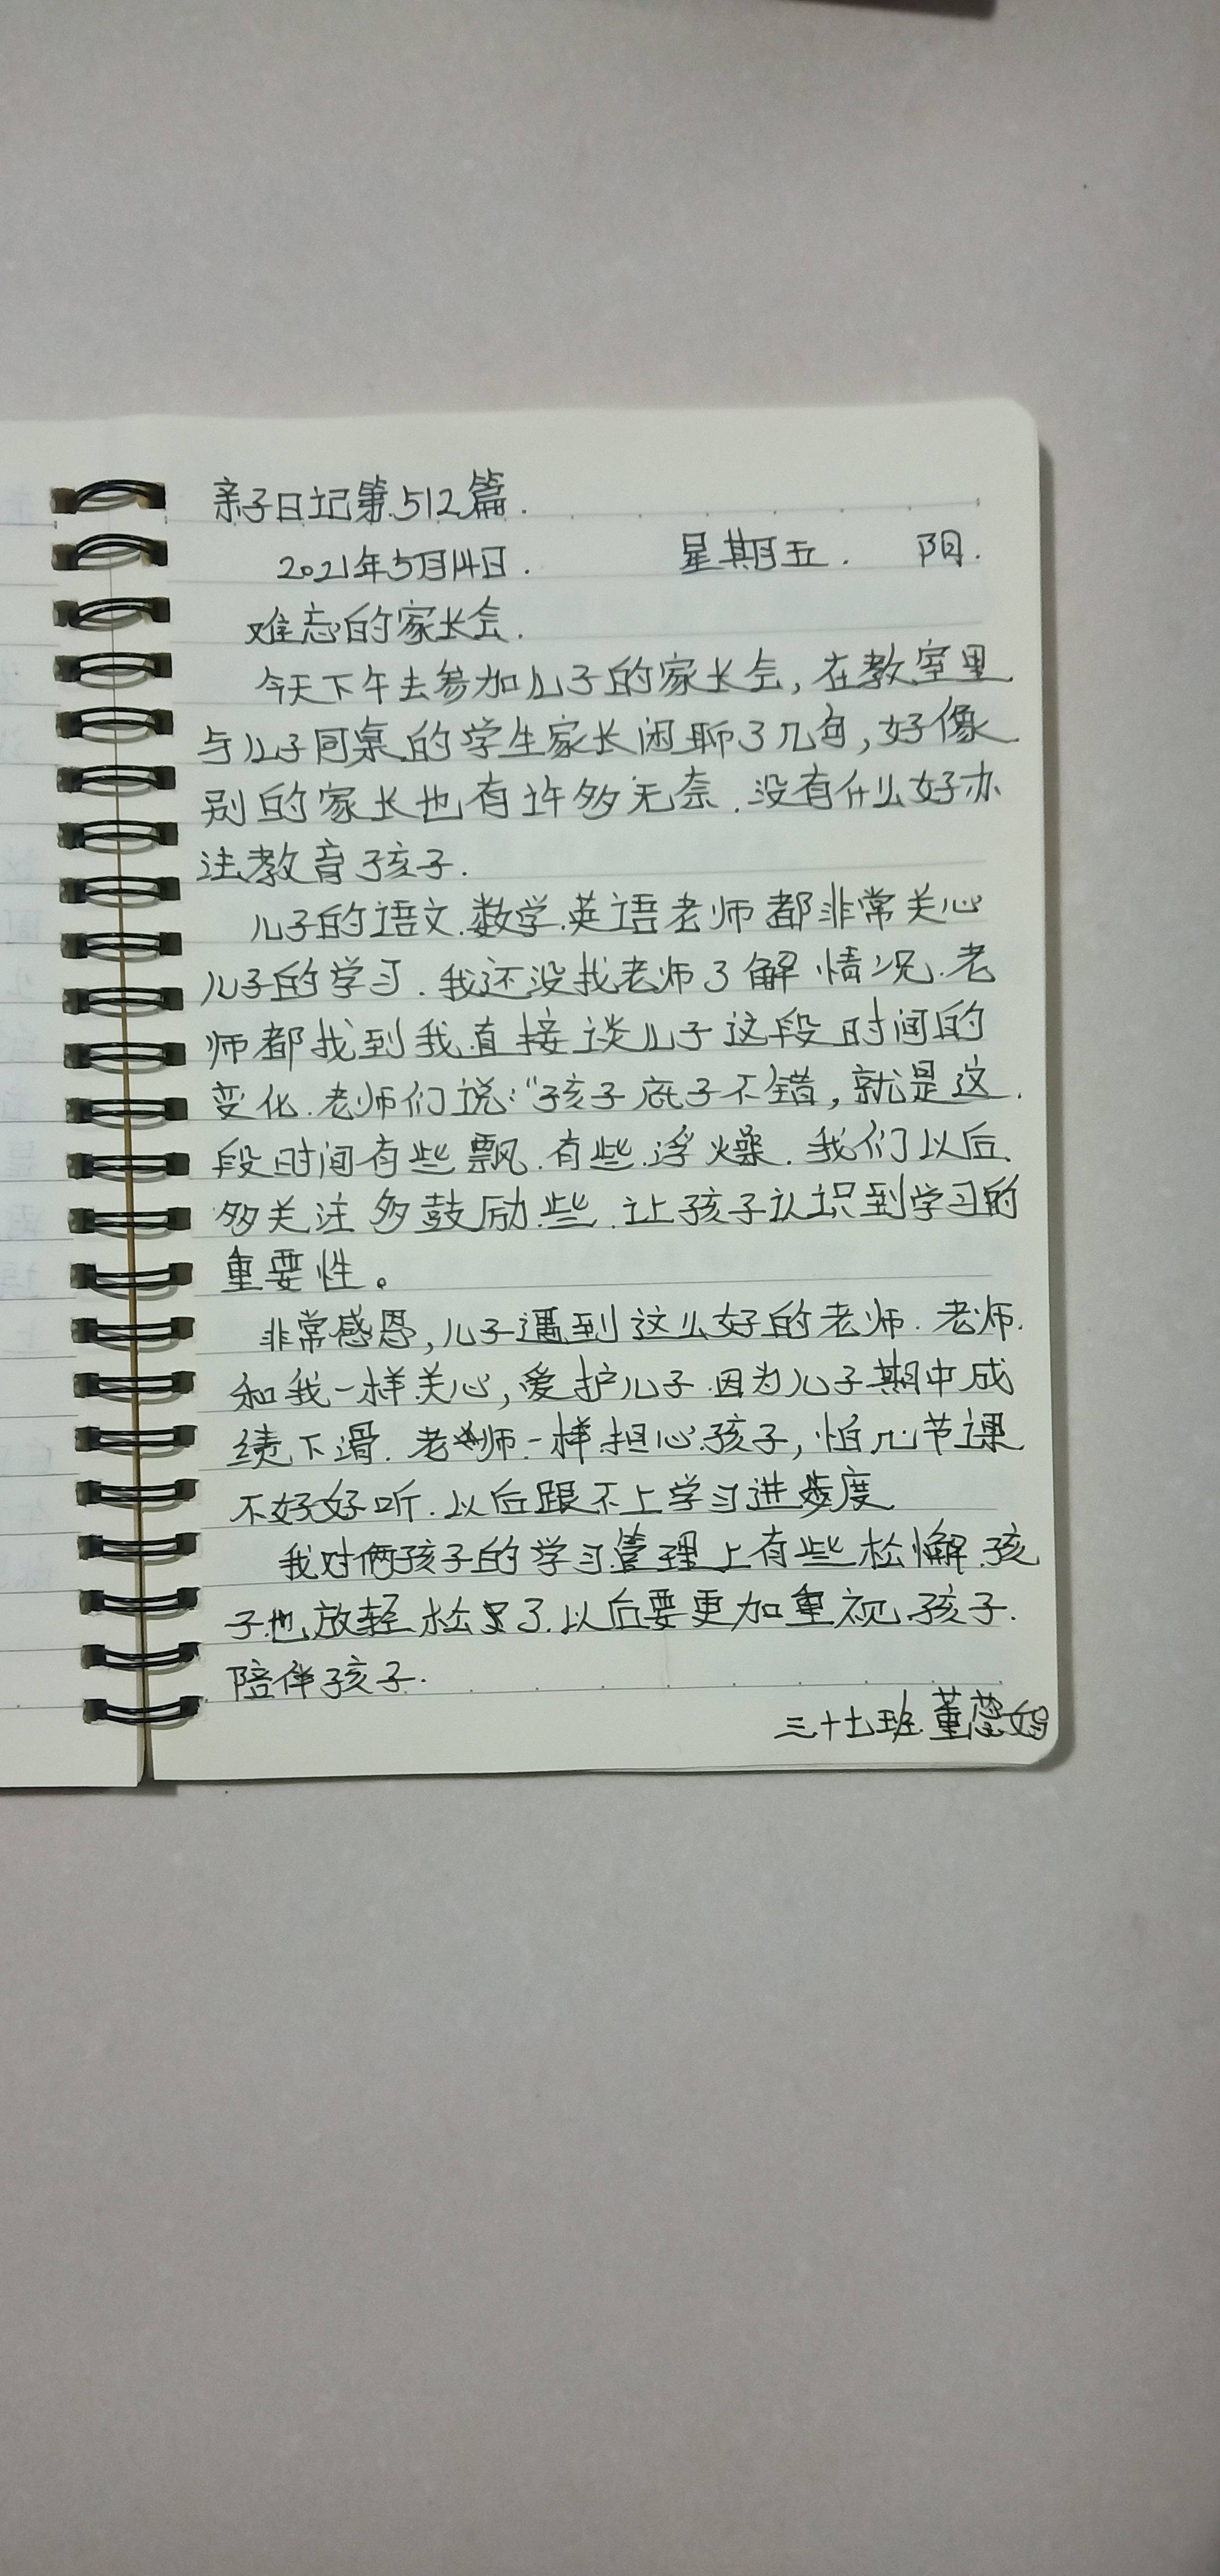 亲子日记第512篇.
2021年5月14日. 星期五. 阴.
难忘的家长会.
今天下午去参加儿子的家长会,在教室里
与儿子同桌的学生家长闲聊了几句,好像
别的家长也有许多无奈.没有什么好办
法教育孩子.
儿子的语文.数学.英语老师都非常关心
儿子的学习.我还没找老师了解情况.老
师都找到我直接谈儿子这段时间的
变化.老师们说:“孩子底子不错,就是这
段时间有些飘.有些浮燥.我们以后
多关注多鼓励些.让孩子认识到学习的
重要性。
非常感恩,儿子遇到这么好的老师.老师
和我一样关心,爱护儿子.因为儿子期中成
绩下滑.老师一样担心孩子,怕几节课
不好好听.以后跟不上学习进度
我对俩孩子的学习管理上有些松懈.孩
子也放轻松了.以后要更加重视孩子.
陪伴孩子.
三十七班.董蕊妈